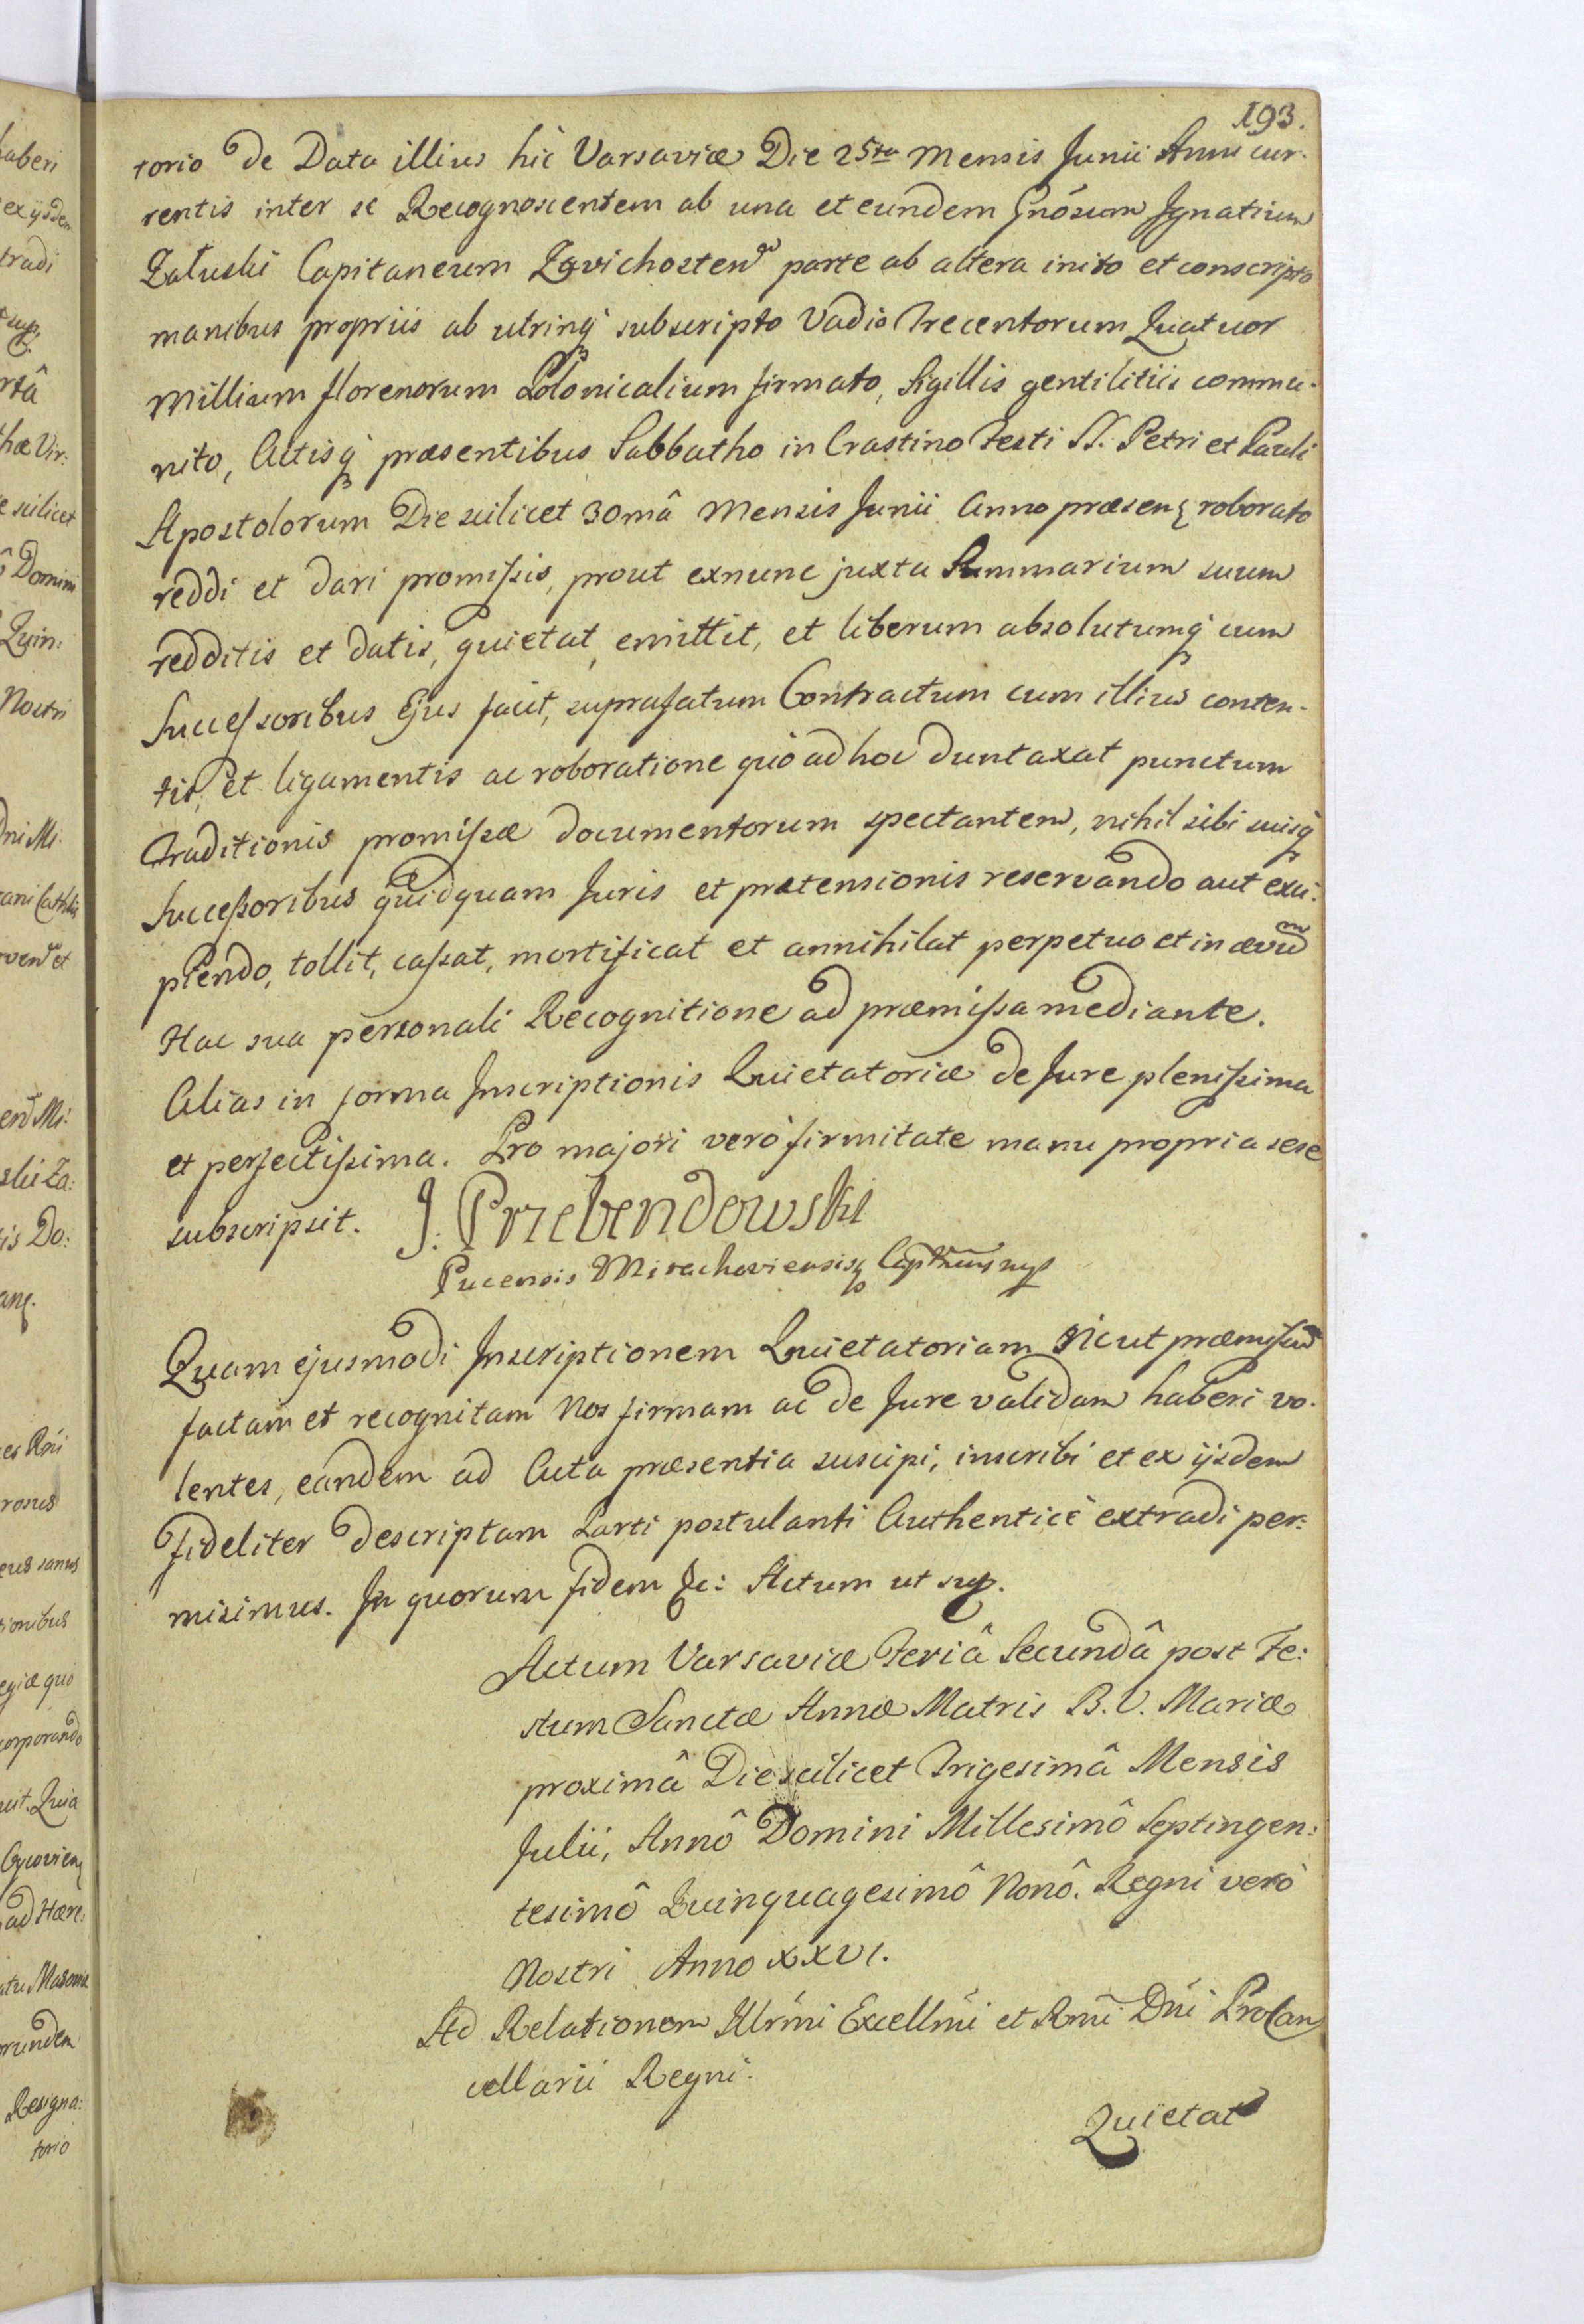 193.
torio de Data illius hic Varsaviæ Die 25ta Mensis Junii Anni cur-
rentis inter se Recognoscentem ab una et eundem Gnõsum Ignatium
Załuski Capitaneum Zavichosten parte ab altera inito et conscripto
manibus propriis ab utrinq subscripto Vadio Trecentorum Quatuor
Millium florenorum Polonicalium firmato, Sigillis gentilitiis commu-
nito, Actisq præsentibus Sabbatho in Crastino Festi SS. Petri et Pauli
Apostolorum Die scilicet 30mâ Mensis Junii Anno præsen roborato
reddi et dari promissis, prout exnunc juxta Summarium suum
redditis et datis, quietat, emittit, et liberum absolutumq cum
Successoribus Ejus facit, suprafatum Contractum cum illius conten-
tis, et ligamentis ac roboratione quò ad hoc duntaxat punctum
Traditionis promissæ documentorum spectanten, nihil sibi suisq
Successoribus quidquam Juris et prætensionis reservando aut exci-
piendo, tollit, cassat, mortificat et annihilat perpetuo et in ævũ
Hac sua personali Recognitione ad præmissa mediante.
Alias in forma Inscriptionis Quietatoriæ de Jure plenissima
et perfectissima. Pro majori verò firmitate manu propria sese
subscripsit. J: Przebendowski
Pucensis Mirachoviensisq Captneus mp
Quam ejusmodi Inscriptionem Quietatoriam sicut præmissũ
factam et recognitam Nos firmam ac de Jure validam haberi vo-
lentes, eandem ad Acta præsentia suscipi, inscribi et ex ijsdem
fideliter descriptam Parti postulanti Authenticè extradi per:
misimus. In quorum fidem &c: Actum ut sup.
Actum Varsaviæ Feriâ Secundâ post Fe:
stum Sanctæ Annæ Matris B. V. Mariæ
proximâ Die scilicet Trigesimâ Mensis
Julii, Annô Domini Millesimô Septingen:
tesimô Quinquagesimô Nonô. Regni verò
Nostri Anno XXVI.
Ad Relationem Illrmi Excellmi et Rmi Dni ProCan
cellarii Regni.
Quietat